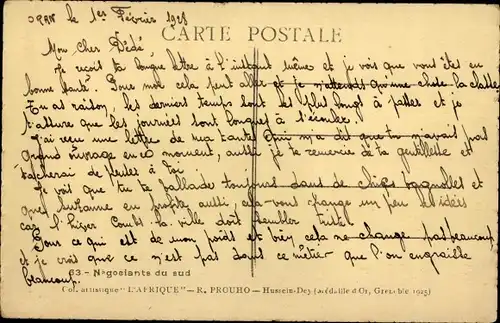 ORAN le 1er Février 1928
CARTE POSTALE
Mon Cher Dédé,
Je reçoit ta longue lettre à l'instant même et je vois que vous êtes en
bonne santé. Pour moi cela peut aller et je n'attends qu'une chose la classe
Tu as raison, les derniers temps sont les plus longs à passer et je
t'assure que les journées sont longues à s'écouler.
J'ai reçu une lettre de ma tante qui m'a dit que tu n'avais pas
grand ouvrage en ce moment, aussi je te remercie de ta gentillesse et
tacherai de penser à toi
Je vois que tu te ballade toujours dans de chics bagnolles et
que Suzanne en profite aussi, cela vous change un peu les idées
car l'hiver Combs-la-ville doit sembler triste
Pour ce qui est de mon poids et bien cela ne change pas beaucoup
et je crois que ce n'est pas dans ce métier que l'on engraisse
beaucoup.
63 - Négociants du sud
Col. artistique "L'AFRIQUE" — R. PROUHO — Hussein-Dey (Médaille d'Or, Grenoble 1925)